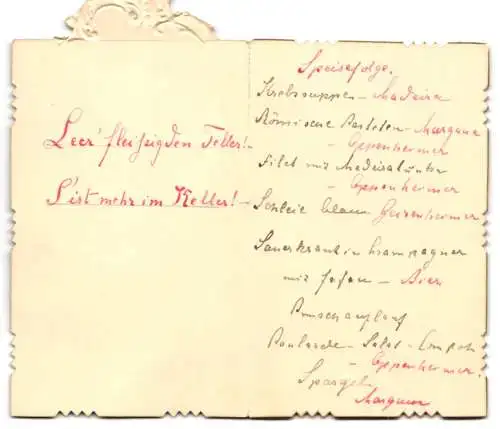 Leer' fleißig den Teller! –
S'ist mehr im Keller! –
Speisefolge.
Krebssuppe – Madeira
Römische Pasteten – Margaux
– Oppenheimer
Filet mit Madeiratunke
– Oppenheimer
Schleie blau Geisenheimer
Sauerkraut in Champagner
mit Fasan – Bier
Punschauflauf
Poularde – Salat – Compott
– Oppenheimer.
Spargel
Margaux